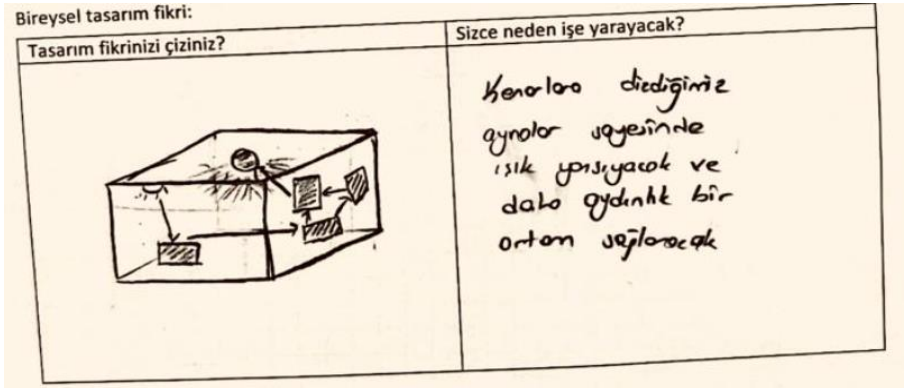 Bireysel tasarım fikri:
Tasarım fikrinizi çiziniz?
Sizce neden işe yarayacak?
Kenarlara dizdiğimiz
aynalar sayesinde
ışık yansıyacak ve
daha aydınlık bir
ortam sağlanacak